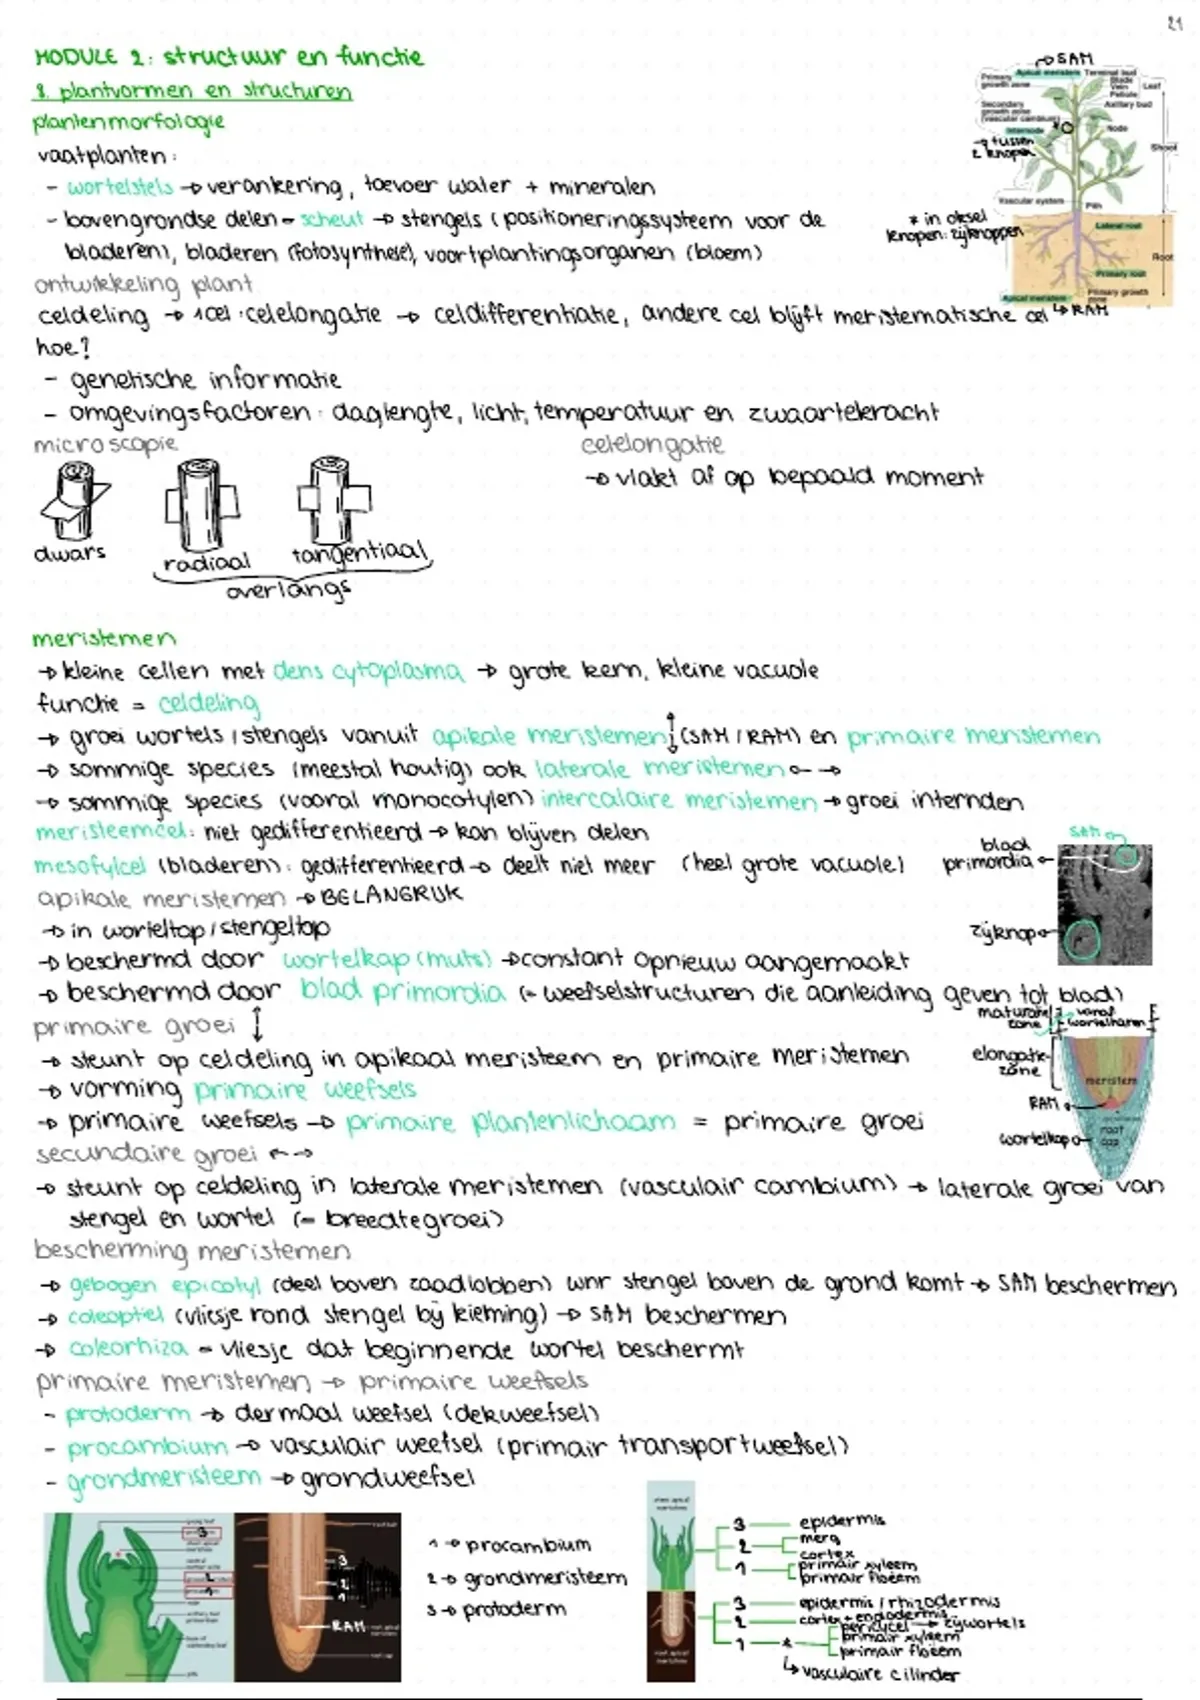 21
MODULE 2: structuur en functie
8. plantvormen en structuren
plantenmorfologie
vaatplanten:
- wortelstels → verankering, toevoer water + mineralen
- bovengrondse delen = scheut → stengels (positioneringssysteem voor de
bladeren), bladeren (fotosynthese), voortplantingsorganen (bloem)
→ SAM
Primary growth zone
Apical meristem
Terminal bud
Blade
Vein
Petiole
Leaf
Secondary growth zone (vascular cambium)
Axillary bud
Internode
Node
→ tussen 2 knopen
Shoot
Vascular system
Pith
* in oksel
knopen: zijknoppen
Lateral root
Root
Primary root
Apical meristem
Primary growth zone
↳ RAM
ontwikkeling plant
celdeling → 1 cel: celelongatie → celdifferentiatie, andere cel blijft meristematische cel
hoe?
- genetische informatie
- omgevingsfactoren: daglengte, licht, temperatuur en zwaartekracht
microscopie
dwars
radiaal
tangentiaal
overlangs
celelongatie
→ vlakt af op bepaald moment
meristemen
→ kleine cellen met dens cytoplasma → grote kern, kleine vacuole
functie = celdeling
→ groei wortels / stengels vanuit apikale meristemen ↕ (SAM / RAM) en primaire meristemen
→ sommige species (meestal houtig) ook laterale meristemen ← →
→ sommige species (vooral monocotylen) intercalaire meristemen → groei internden
meristeemcel: niet gedifferentieerd → kan blijven delen
mesofylcel (bladeren): gedifferentieerd → deelt niet meer (heel grote vacuole)
SAM
blad primordia
zijknop
apikale meristemen → BELANGRIJK
→ in worteltop / stengeltop
→ beschermd door wortelkap (muts) → constant opnieuw aangemaakt
→ beschermd door blad primordia (= weefselstructuren die aanleiding geven tot blad)
primaire groei ↕
→ steunt op celdeling in apikaal meristeem en primaire meristemen
→ vorming primaire weefsels
→ primaire weefsels → primaire plantenlichaam = primaire groei
maturatie zone
vanaf wortelharen
elongatie zone
meristem
RAM
root cap
wortelkap
secundaire groei ← →
→ steunt op celdeling in laterale meristemen (vasculair cambium) → laterale groei van
stengel en wortel (= breedtegroei)
bescherming meristemen
→ gebogen epicotyl (deel boven zaadlobben) wnr stengel boven de grond komt → SAM beschermen
→ coleoptiel (vliesje rond stengel bij kieming) → SAM beschermen
→ coleorhiza = vliesje dat beginnende wortel beschermt
primaire meristemen → primaire weefsels
- protoderm → dermaal weefsel (dekweefsel)
- procambium → vasculair weefsel (primair transportweefsel)
- grondmeristeem → grondweefsel
3
2
1
3
2
1
RAM
1 → procambium
2 → grondmeristeem
3 → protoderm
3 epidermis
2 merg
cortex
1 primair xyleem
primair floëem
3 epidermis / rhizodermis
2 cortex + endodermis
1 * pericycel → zijwortels
primair xyleem
primair floëem
↳ vasculaire cilinder